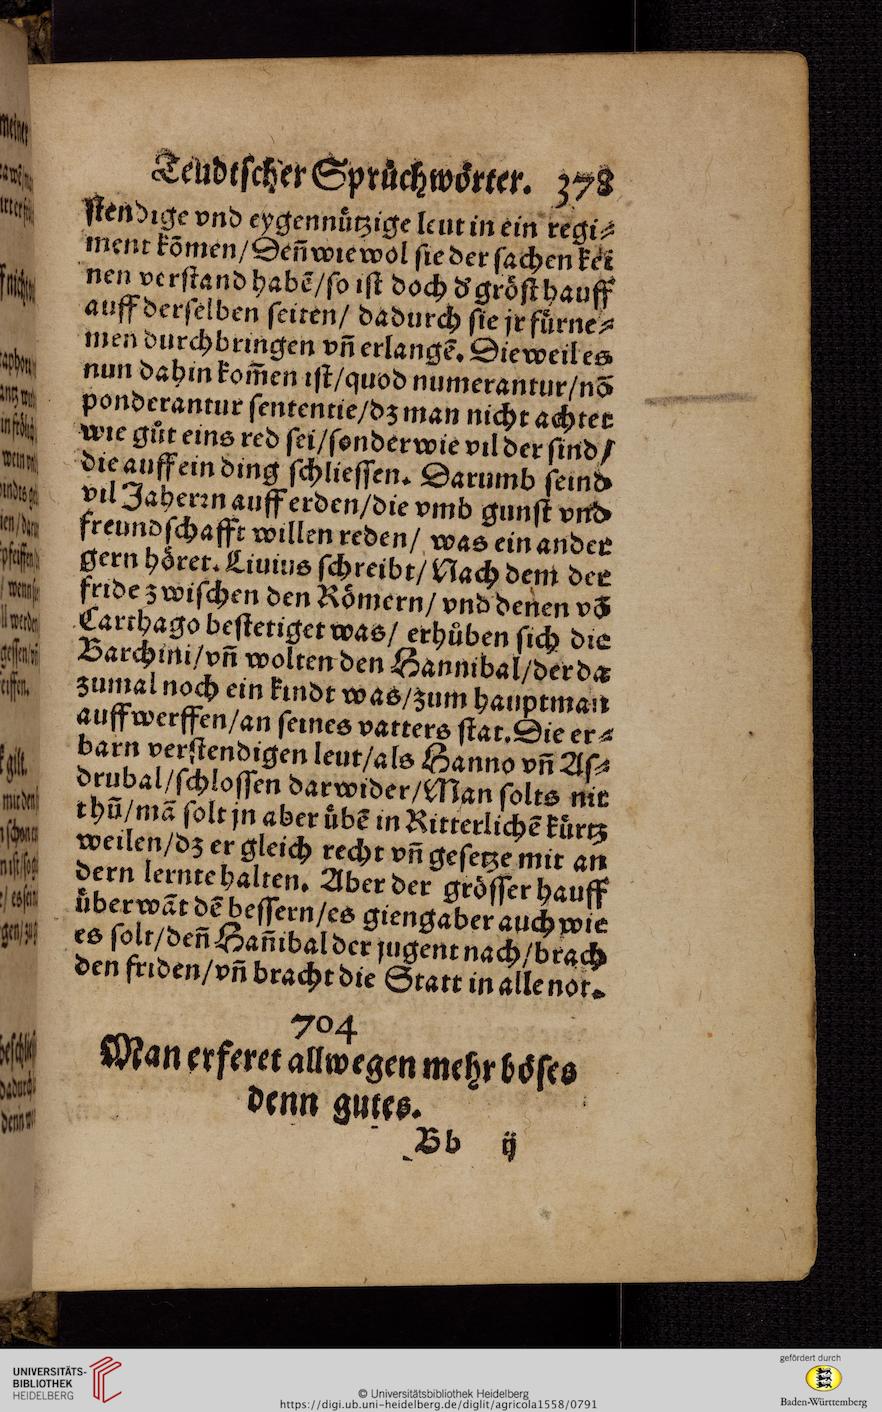 Teudtscher Sprüchwörter. 378
stendige vnd eygennützige leut in ein regi⸗
ment kõmen/Deñ wiewol sie der sachen kei
nen verstand habẽ/so ist doch d' gröst hauff
auff derselben seiten/ dadurch sie jr fürne⸗
men durchbringen vñ erlangẽ. Dieweil es
nun dahin kom̃en ist/quod numerantur/nõ
ponderantur sententie/dz man nicht achtet
wie gůt eins red sei/sonder wie vil der sind/
die auff ein ding schliessen. Darumb seind
vil Jaherrn auff erden/die vmb gunst vnd
freundschafft willen reden/ was ein ander
gern höret. Liuius schreibt/ Nach dem der
fride zwischen den Römern/ vnd denen võ
Carthago bestetiget was/ erhůben sich die
Barchini/vñ wolten den Hannibal/der da
zumal noch ein kindt was/zum hauptman
auffwerffen/an seines vatters stat. Die er⸗
barn verstendigen leut/als Hanno vñ As⸗
drubal/schlossen darwider/Man solts nit
thů/mã solt jn aber übẽ in Ritterlichẽ kürtz
weilen/dz er gleich recht vñ gesetze mit an
dern lernte halten. Aber der grösser hauff
überwãt dẽ bessern/es gieng aber auch wie
es solt/deñ Hañibal der jugent nach/brach
den friden/vñ bracht die Statt in alle not.
704
Man erferet allwegen mehr böses
denn gutes.
Bb ij
UNIVERSITÄTS-
BIBLIOTHEK
HEIDELBERG
© Universitätsbibliothek Heidelberg
https://digi.ub.uni-heidelberg.de/diglit/agricola1558/0791
gefördert durch
Baden-Württemberg